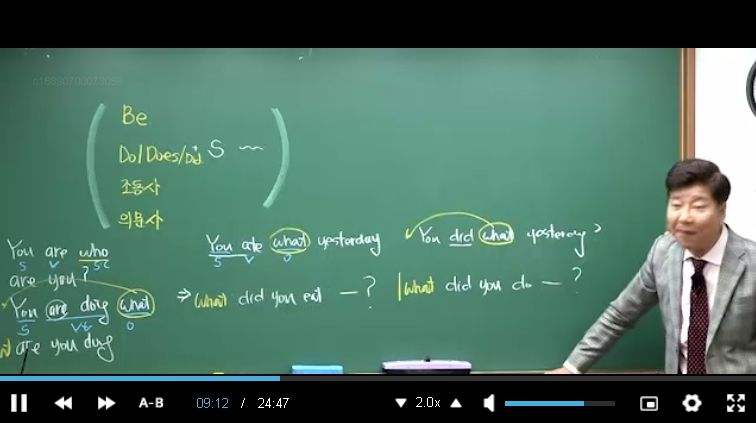 c16890700073059
Be
Do/Does/Did S
조동사
의문사
You are who
S V SC
are you?
You are doing what
S V O
are you doing
You ate what yesterday
S V O
⇒ what did you eat — ?
You did what yesterday?
what did you do — ?
09:12 / 24:47
A-B
2.0x